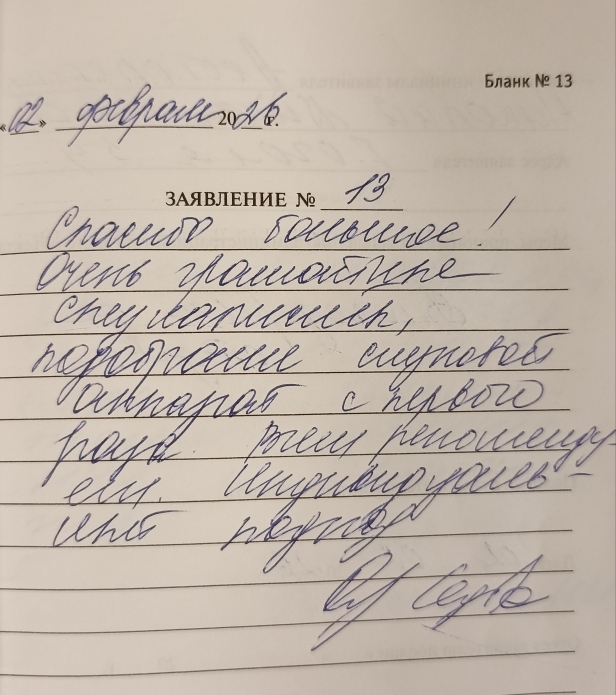 Бланк № 13
«02» февраля 2026 г.
ЗАЯВЛЕНИЕ № 13
Спасибо большое!
Очень грамотные
специалисты,
подобрали слуховой
аппарат с первого
раза. Всем рекоменду-
ем. Индивидуаль-
ный подход